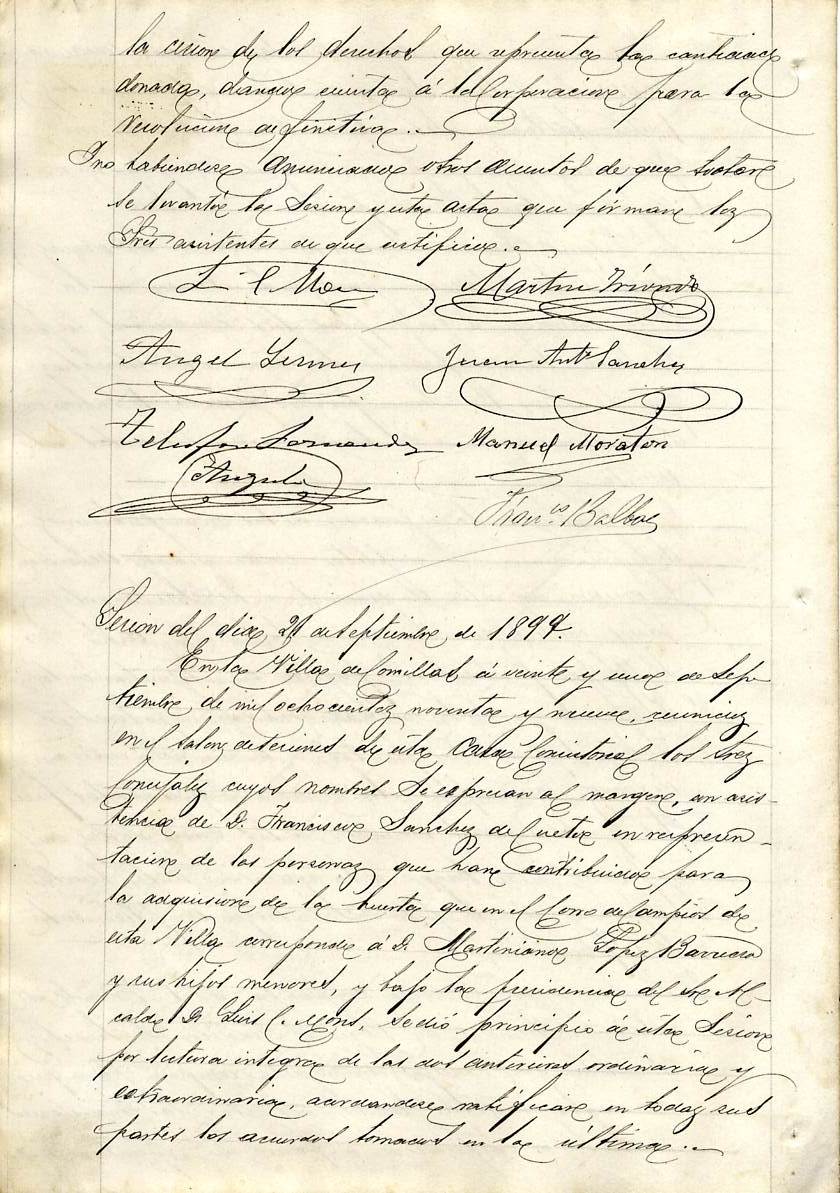 la cesion de los derechos que representa la cantidad
donada, dando cuenta á la Corporacion para la
resolucion definitiva.
Y no habiendose anunciado otros asuntos de que tratar
se levantó la Sesion y esta acta que firman los
Sres asistentes de que certifico.
Martin Triondo
Angel Juan Ant.º Sanchez
Telesforo Fernandez Manuel Moraton
Fran.co Balboa
Sesion del dia 21 de Septiembre de 1899.
En la Villa de Comillas á veinte y uno de Sep-
tiembre de mil ochocientos noventa y nueve, reunidos
en el Salon de sesiones de esta Casa Consistorial los Srez
Concejales cuyos nombres se expresan al margen, con asis-
tencia de D. Francisco Sanchez de Cueto en represen-
tacion de las personas que han contribuido para
la adquision de la huerta que en el Corro de Campios de
esta Villa corresponde á D. Martiniano Lopez Barreda
y sus hijos menores, y bajo la presidencia del Sr. Al-
calde D. Luis C. Mons, se dió principio á esta Sesion
por lectura integra de las dos anteriores ordinaria y
extraordinaria, acordandose ratificar en todas sus
partes los acuerdos tomados en la última.